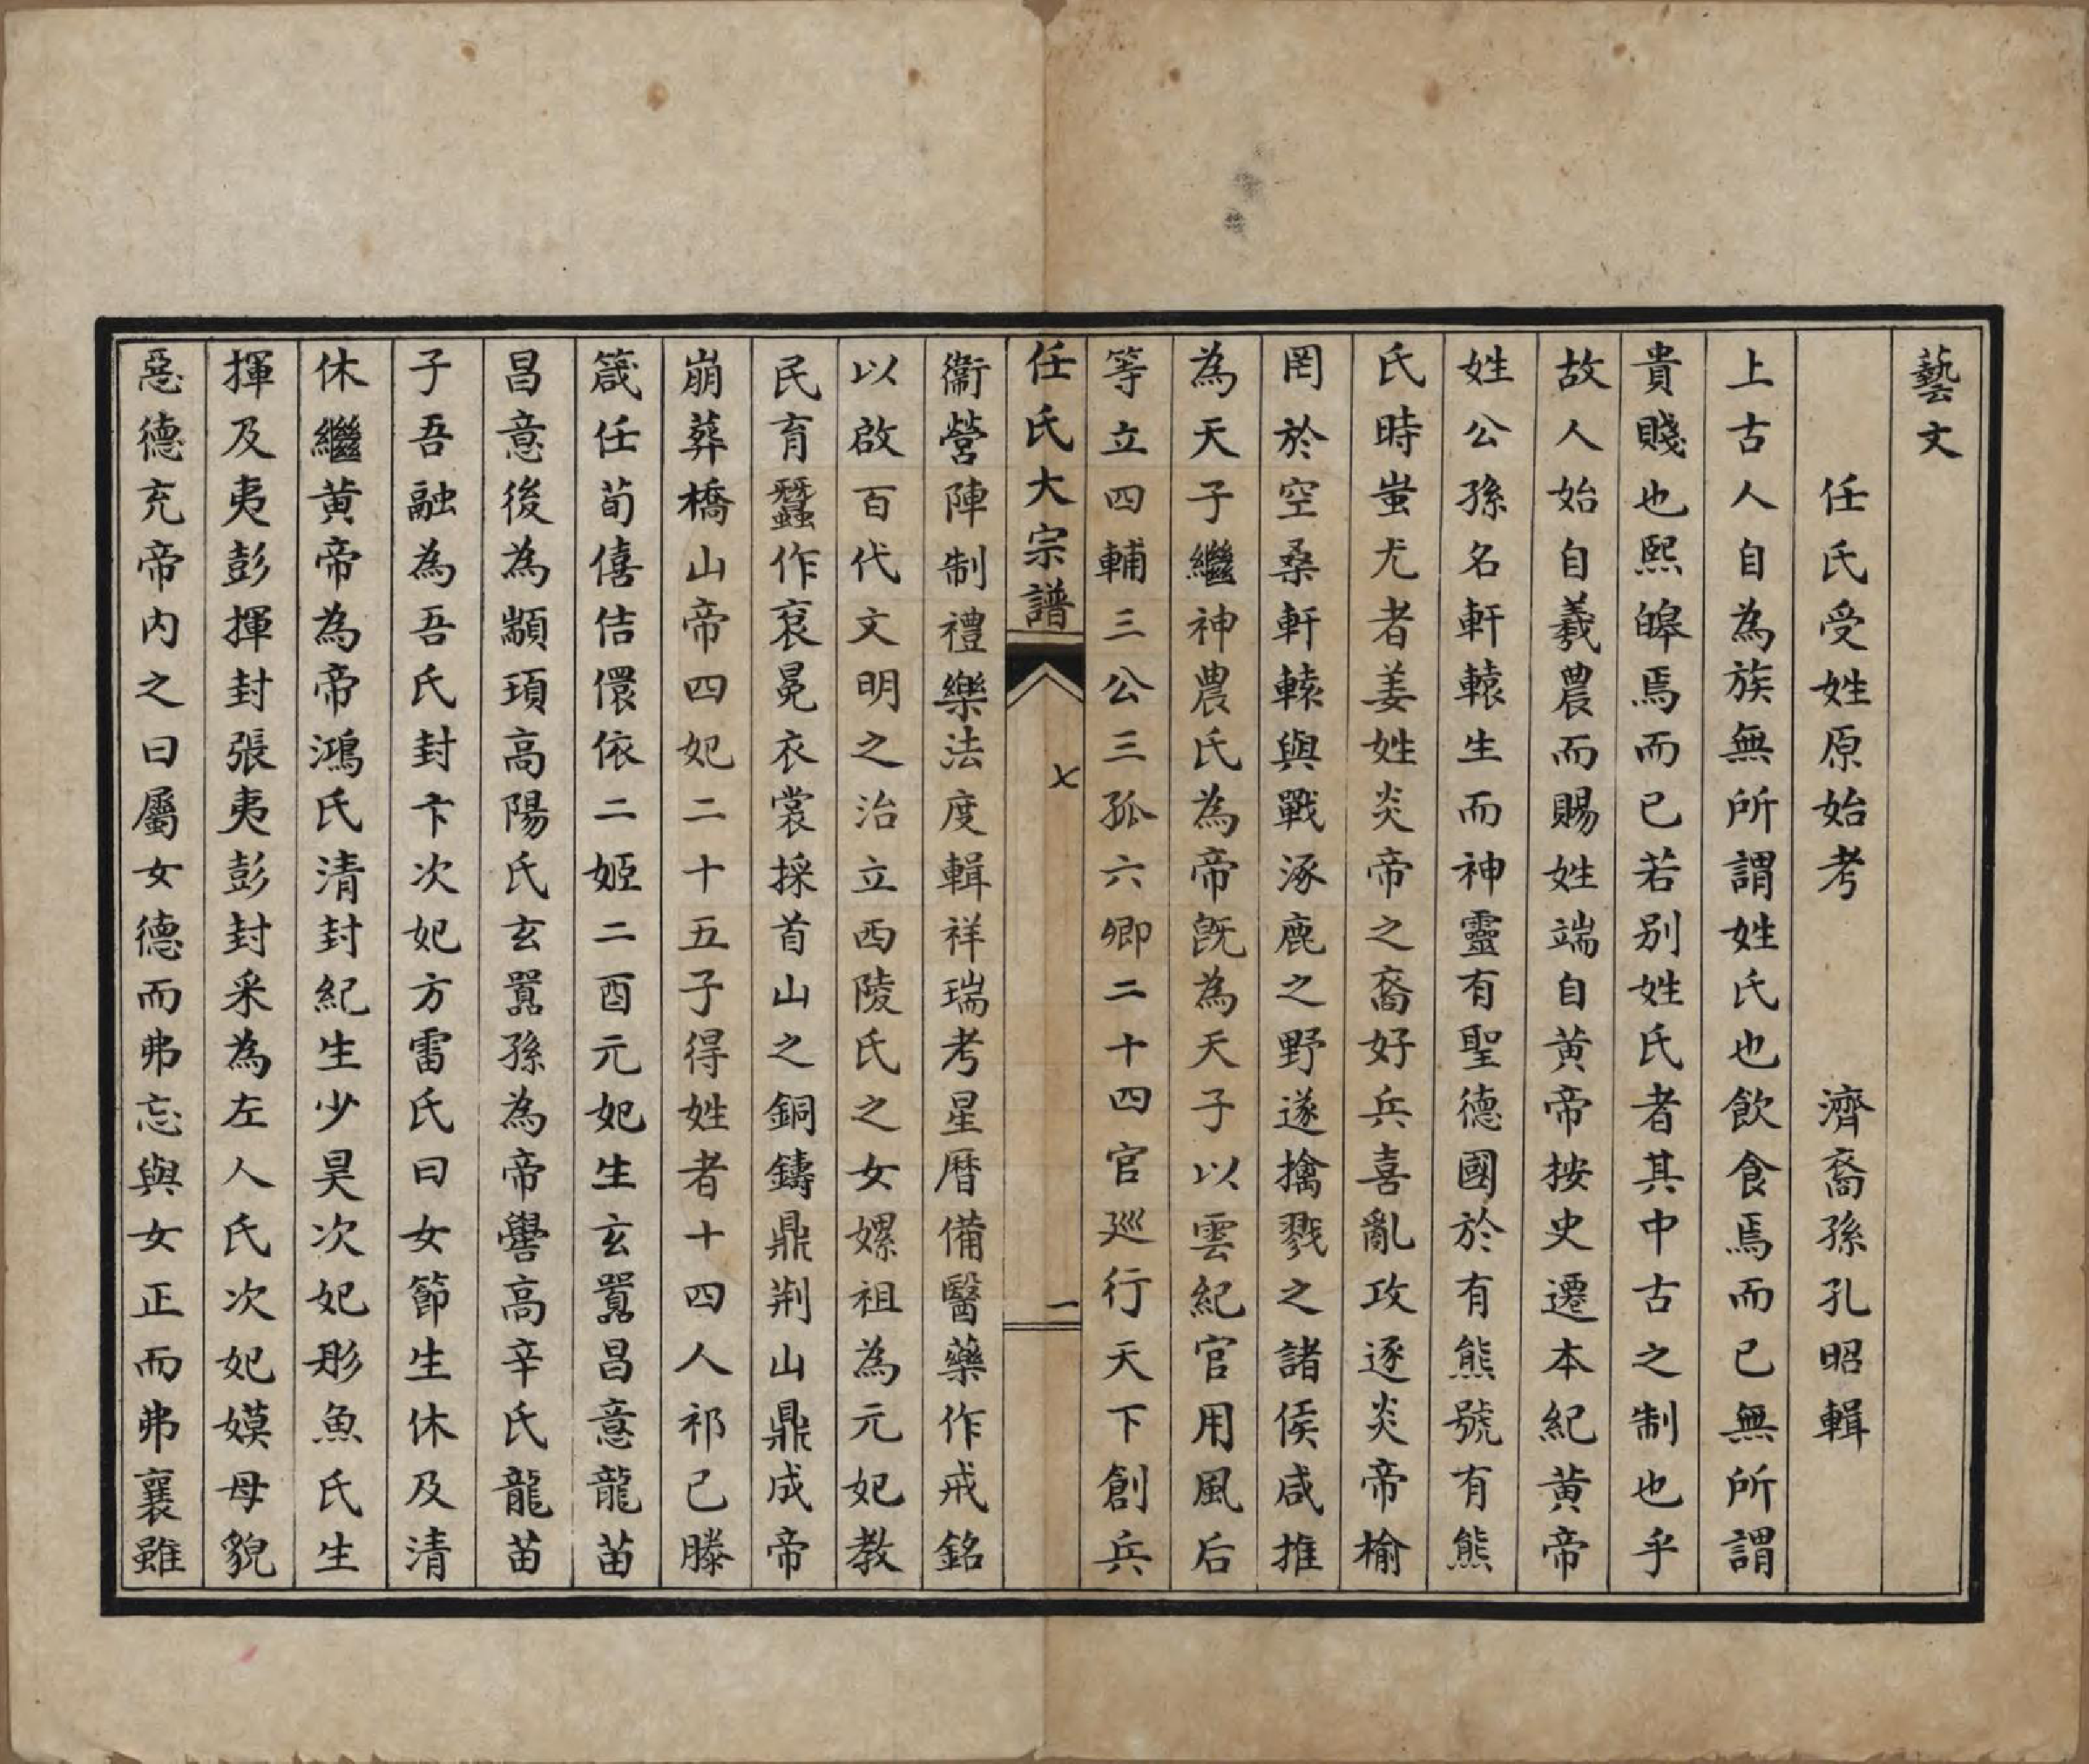 藝文
任氏受姓原始考　濟裔孫孔昭輯
上古人自為族無所謂姓氏也飲食焉而已無所謂
貴賤也熙皞焉而已若別姓氏者其中古之制也乎
故人始自羲農而賜姓端自黃帝按史遷本紀黃帝
姓公孫名軒轅生而神靈有聖德國於有熊號有熊
氏時蚩尤者姜姓炎帝之裔好兵喜亂攻逐炎帝榆
罔於空桑軒轅與戰涿鹿之野遂擒戮之諸侯咸推
為天子繼神農氏為帝旣為天子以雲紀官用風后
等立四輔三公三孤六卿二十四官廵行天下創兵
任氏大宗譜
七
一
衞營陣制禮樂法度輯祥瑞考星曆備醫藥作戒銘
以啟百代文明之治立西陵氏之女嫘祖為元妃教
民育蠶作袞冕衣裳採首山之銅鑄鼎荆山鼎成帝
崩葬橋山帝四妃二十五子得姓者十四人祁己滕
箴任荀僖佶儇依二姬二酉元妃生玄囂昌意龍苗
昌意後為顓頊高陽氏玄囂孫為帝嚳高辛氏龍苗
子吾融為吾氏封卞次妃方雷氏曰女節生休及清
休繼黃帝為帝鴻氏清封紀生少昊次妃彤魚氏生
揮及夷彭揮封張夷彭封采為左人氏次妃嫫母貌
惡德充帝内之曰屬女德而弗忘與女正而弗襄雖